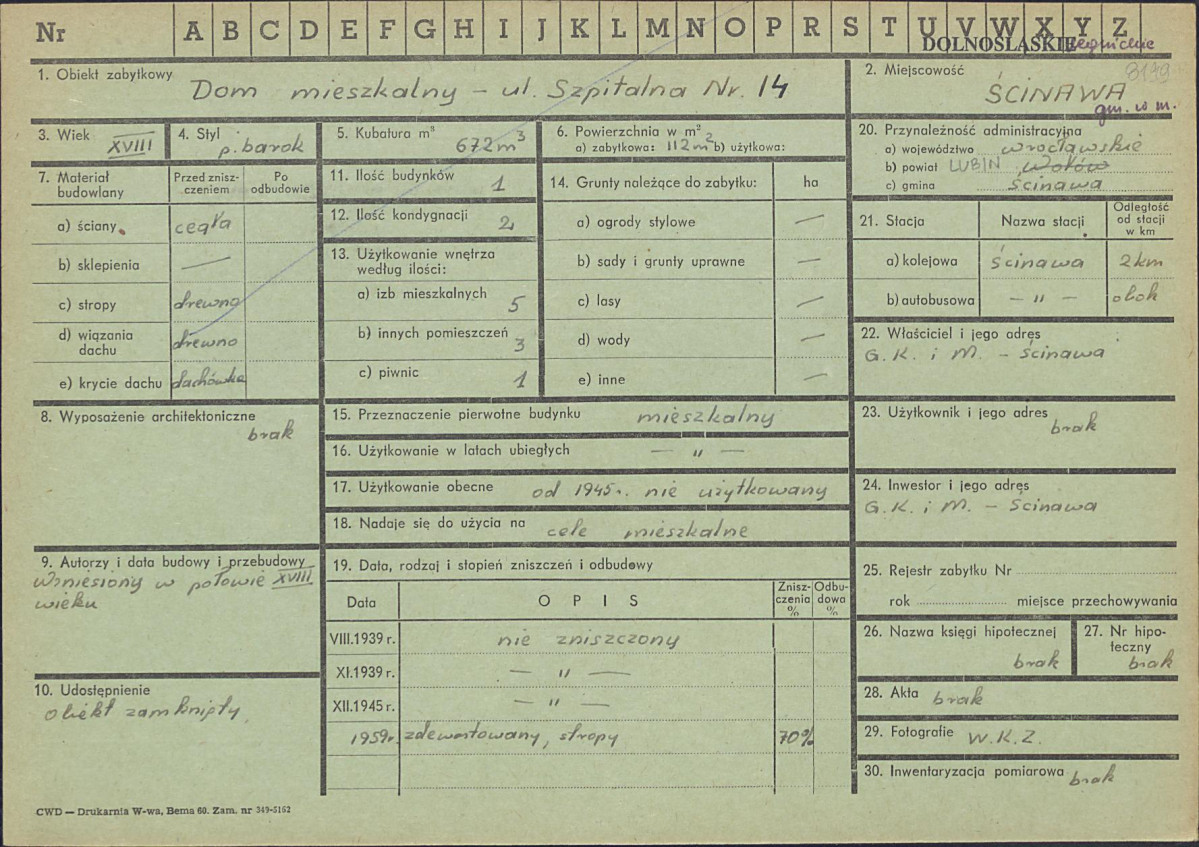 Nr A B C D E F G H I J K L M N O P R S T U V W X Y Z
DOLNOŚLĄSKIE legnickie
8199
1. Obiekt zabytkowy
Dom mieszkalny – ul. Szpitalna Nr. 14
2. Miejscowość
ŚCINAWA
gm. w m.
3. Wiek XVIII
4. Styl p. barok
5. Kubatura m³ 672 m³
6. Powierzchnia w m²
a) zabytkowa: 112 m² b) użytkowa:
7. Materiał budowlany
Przed znisz-
czeniem
Po
odbudowie
a) ściany cegła
b) sklepienia —
c) stropy drewno
d) wiązania
dachu drewno
e) krycie dachu dachówka
8. Wyposażenie architektoniczne
brak
9. Autorzy i data budowy i przebudowy
Wzniesiony w połowie XVIII
wieku
10. Udostępnienie
obiekt zamknięty
11. Ilość budynków 1
12. Ilość kondygnacji 2
13. Użytkowanie wnętrza
według ilości:
a) izb mieszkalnych 5
b) innych pomieszczeń 3
c) piwnic 1
14. Grunty należące do zabytku: ha
a) ogrody stylowe —
b) sady i grunty uprawne —
c) lasy —
d) wody —
e) inne —
15. Przeznaczenie pierwotne budynku mieszkalny
16. Użytkowanie w latach ubiegłych — " —
17. Użytkowanie obecne od 1945 r. nie użytkowany
18. Nadaje się do użycia na cele mieszkalne
19. Data, rodzaj i stopień zniszczeń i odbudowy
Data OPIS
Znisz-
czenia
%
Odbu-
dowa
%
VIII.1939 r. nie zniszczony
XI.1939 r. — " —
XII.1945 r. — " —
1959 r. zdewastowany, stropy 70%
20. Przynależność administracyjna
a) województwo wrocławskie
b) powiat LUBIN, Wołów
c) gmina Ścinawa
21. Stacja Nazwa stacji
Odległość
od stacji
w km
a) kolejowa Ścinawa 2 km
b) autobusowa — " — obok
22. Właściciel i jego adres
G. K. i M. – Ścinawa
23. Użytkownik i jego adres
brak
24. Inwestor i jego adres
G. K. i M. – Ścinawa
25. Rejestr zabytku Nr
rok miejsce przechowywania
26. Nazwa księgi hipotecznej
brak
27. Nr hipo-
teczny
brak
28. Akta brak
29. Fotografie W.K.Z.
30. Inwentaryzacja pomiarowa brak
CWD — Drukarnia W-wa, Bema 60. Zam. nr 349-5162